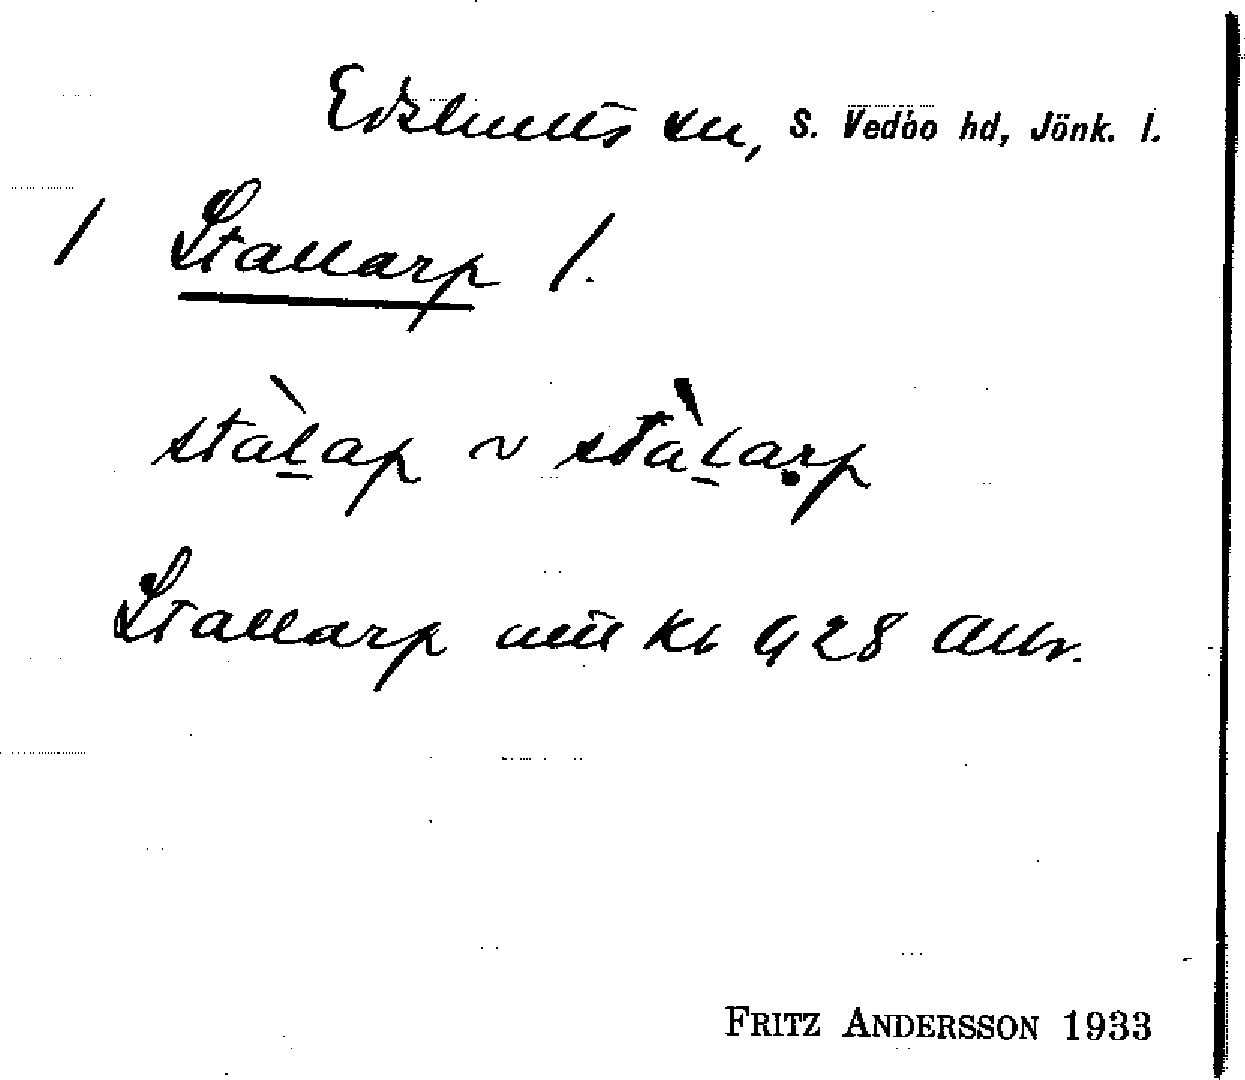 Edshults sn, S. Vedbo hd, Jönk. l.
/ Stallarp /.
stàl̲ap ~ stàl̲arp
Stallarp mtl Kb 9, 28 Allm.
FRITZ ANDERSSON 1933